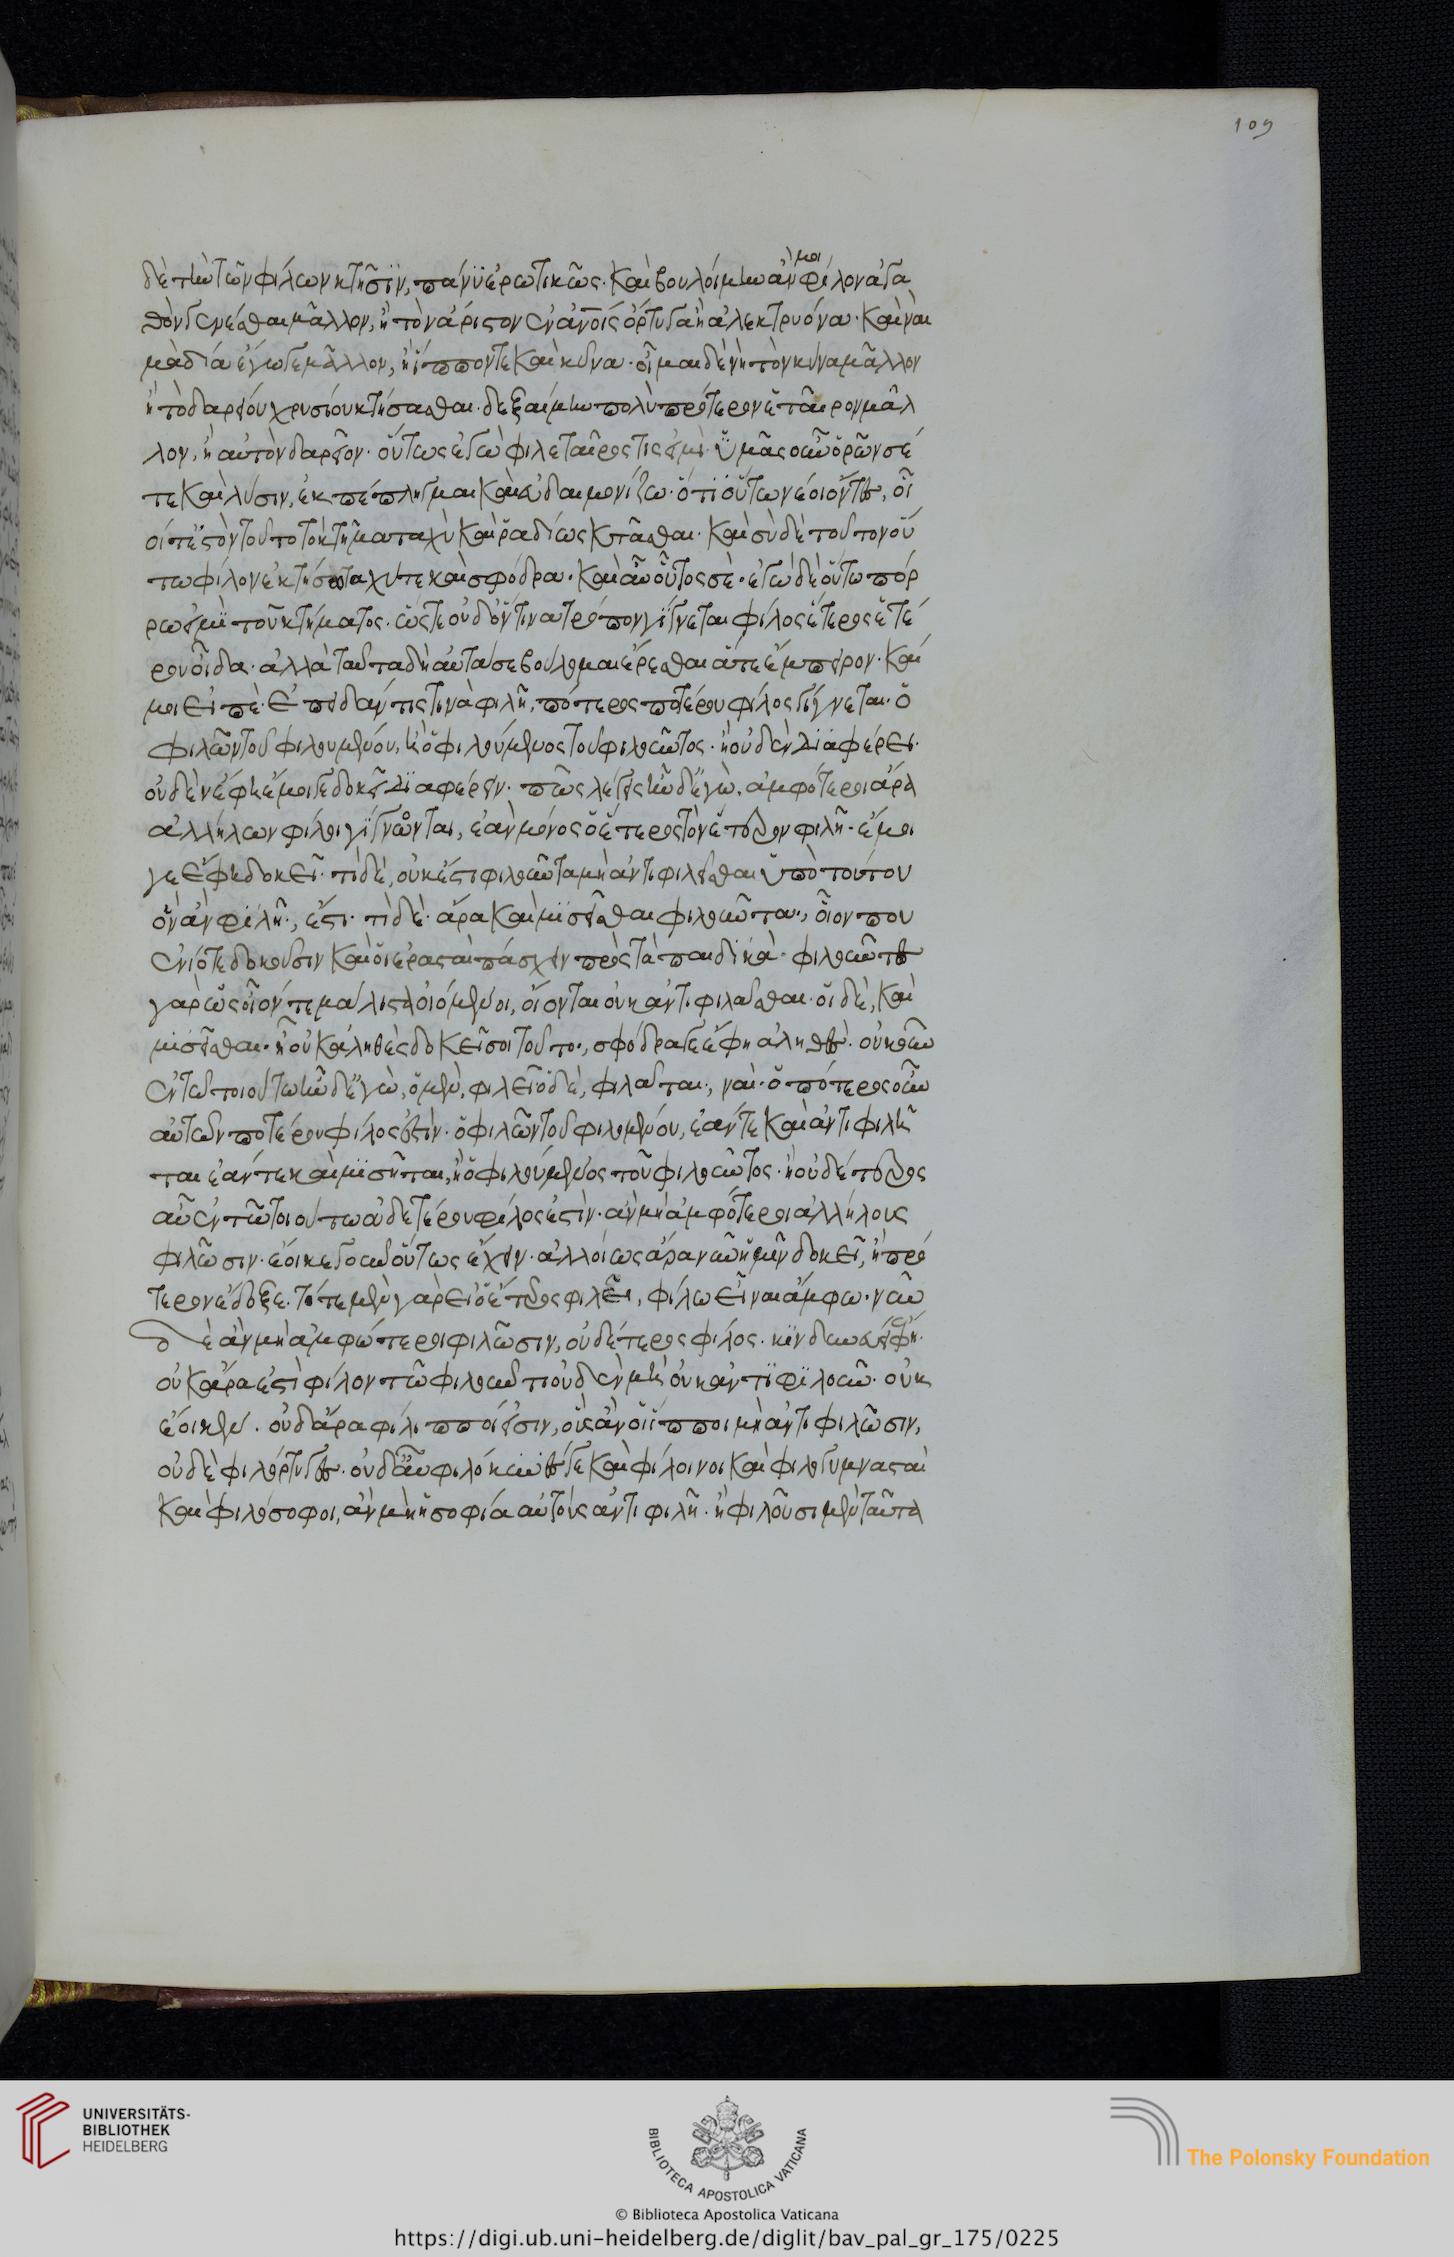 109
δὲ τὴν τῶν φίλων κτῆσιν, πάνυ ἐρωτικῶς· καὶ βουλοίμην ἄν μοι φίλον ἀγα
θὸν γενέσθαι μᾶλλον, ἢ τὸν ἄριστον ἐν ἀνοις ὄρτυγα ἢ ἀλεκτρυόνα· καὶ ναι
μὰ δία ἔγωγε μᾶλλον, ἢ ἵππον τε καὶ κύνα· οἶμαι δὲ νὴ τὸν κύνα μᾶλλον
ἢ τὸ δαρείου χρυσίον κτήσασθαι· δεξαίμην πολὺ πρότερον ἕταιρον μᾶλ
λον, ἢ αὐτὸν δαρεῖον· οὕτως ἐγὼ φιλέταιρός τις εἰμὶ· ὑμᾶς οὖν ὁρῶν σέ
τε καὶ λύσιν, ἐκπέπληγμαι καὶ εὐδαιμονίζω· ὅτι οὕτω νέοι ὄντες, οἷ
οί τ' ἐστὸν τοῦτο τὸ κτῆμα ταχὺ καὶ ῥαδίως κτᾶσθαι· καὶ σὺ δὲ τοῦτον οὕ
τω φίλον ἐκτήσω ταχύ τε καὶ σφόδρα· καὶ αὖ οὗτος σὲ· ἐγὼ δὲ οὕτω πόρ
ρω εἰμὶ τοῦ κτήματος· ὥστε οὐδ' ὅντινα τρόπον γίγνεται φίλος ἕτερος ἑτέ
ρου οἶδα· ἀλλὰ ταῦτα δὴ αὐτά σε βούλομαι ἐρέσθαι ἅτε ἔμπειρον· καί
μοι εἰπὲ· ἐπειδάν τις τινὰ φιλῆ, πότερος ποτέρου φίλος γίγνεται· ὁ
φιλῶν τοῦ φιλουμένου, ἢ ὁ φιλούμενος τοῦ φιλοῦντος· ἢ οὐδὲν διαφέρει·
οὐδὲν ἔφη ἔμοιγε δοκεῖ διαφέρειν· πῶς λέγεις ἦν δ' ἐγὼ, ἀμφότεροι ἄρα
ἀλλήλων φίλοι γίγνονται, ἐὰν μόνος ὁ ἕτερος τὸν ἕτερον φιλῆ· ἔμοι
γε ἔφη δοκεῖ· τί δέ, οὐκ ἔστι φιλοῦντα μὴ ἀντιφιλεῖσθαι ὑπὸ τούτου
ὃν ἂν φιλῆ·, ἔστι· τί δέ· ἆρα καὶ μισεῖσθαι φιλοῦντα·, οἷόν που
ἐνίοτε δοκοῦσιν καὶ οἱ ἐρασταὶ πάσχειν πρὸς τὰ παιδικὰ· φιλοῦντες
γὰρ ὡς οἷόν τε μάλιστα οἰόμενοι, οἴονται οὐκ ἀντιφιλεῖσθαι· οἱ δὲ, καὶ
μισεῖσθαι· ἢ οὐκ ἀληθὲς δοκεῖ σοι τοῦτο·, σφόδρα γε ἔφη ἀληθές· οὐκοῦν
ἐν τῶ τοιούτω ἦν δ' ἐγὼ, ὁ μὲν, φιλεῖ ὁ δὲ, φιλεῖται·, ναὶ· ὁπότερος οὖν
αὐτῶν ποτέρου φίλος ἐστίν· ὁ φιλῶν τοῦ φιλουμένου, ἐάν τε καὶ ἀντιφιλῆ
ται ἐάν τε καὶ μισῆται, ἢ ὁ φιλούμενος τοῦ φιλοῦντος· ἢ οὐδέτερος
αὖ ἐν τῶ τοιούτω οὐδετέρου φίλος ἐστίν· ἂν μὴ ἀμφότεροι ἀλλήλους
φιλῶσιν· ἔοικε γοῦν οὕτως ἔχειν· ἀλλοίως ἄρα νῦν ἡμῖν δοκεῖ, ἢ πρό
τερον ἔδοξε· τότε μὲν γὰρ εἰ ὁ ἕτερος φιλεῖ, φίλω εἶναι ἄμφω· νῦν
δὲ ἂν μὴ ἀμφώτεροι φιλῶσιν, οὐδέτερος φίλος· κινδυνεύει ἔφη·
οὐκ ἄρα ἐστὶ φίλον τῶ φιλοῦντι οὐδὲν μὴ οὐκ ἀντιφιλοῦν· οὐκ
ἔοικεν· οὐδ' ἄρα φίλιπποί εἰσιν, οὓς ἂν οἱ ἵπποι μὴ ἀντιφιλῶσιν,
οὐδὲ φιλόρτυγες· οὐδ' αὖ φιλόκυνές γε καὶ φίλοινοι καὶ φιλογυμνασταὶ
καὶ φιλόσοφοι, ἂν μὴ ἡ σοφία αὐτοὺς ἀντιφιλῆ· ἢ φιλοῦσι μὲν ταῦτα
UNIVERSITÄTS-
BIBLIOTHEK
HEIDELBERG
BIBLIOTECA APOSTOLICA VATICANA
The Polonsky Foundation
© Biblioteca Apostolica Vaticana
https://digi.ub.uni-heidelberg.de/diglit/bav_pal_gr_175/0225